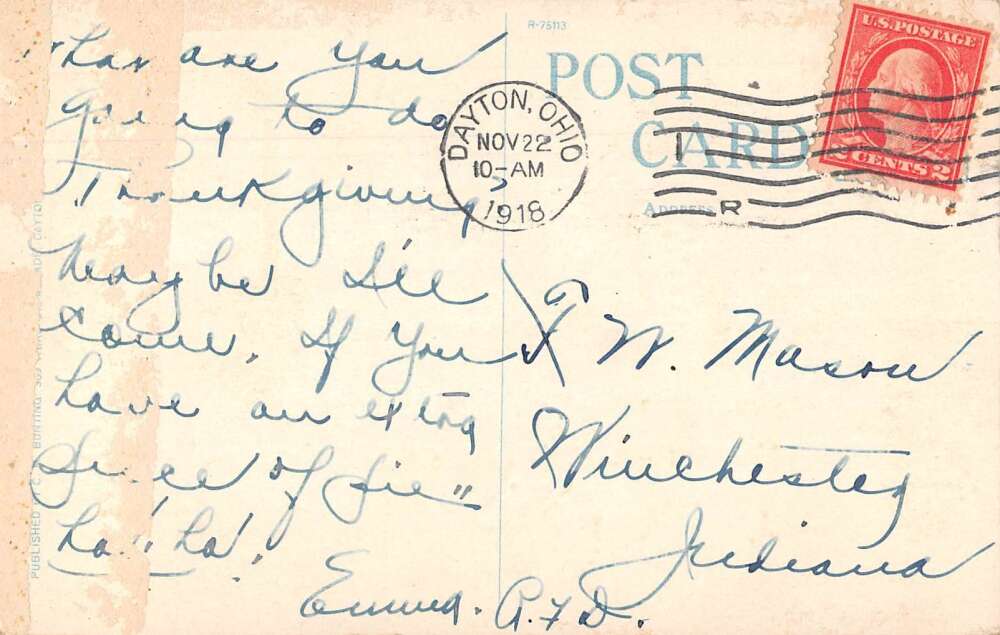 What are you
going to do
Thanksgiving
Maybe I'll
come, If you
have an extra
piece of pie"
ha" ha!
Emma.
R-75113
POST
CARD
ADDRESS
DAYTON, OHIO
NOV 22
10-AM
1918
R
U.S. POSTAGE
2 CENTS 2
W. Mason
Winchester
Indiana
R.F.D.
PUBLISHED BY C.
BUNTING